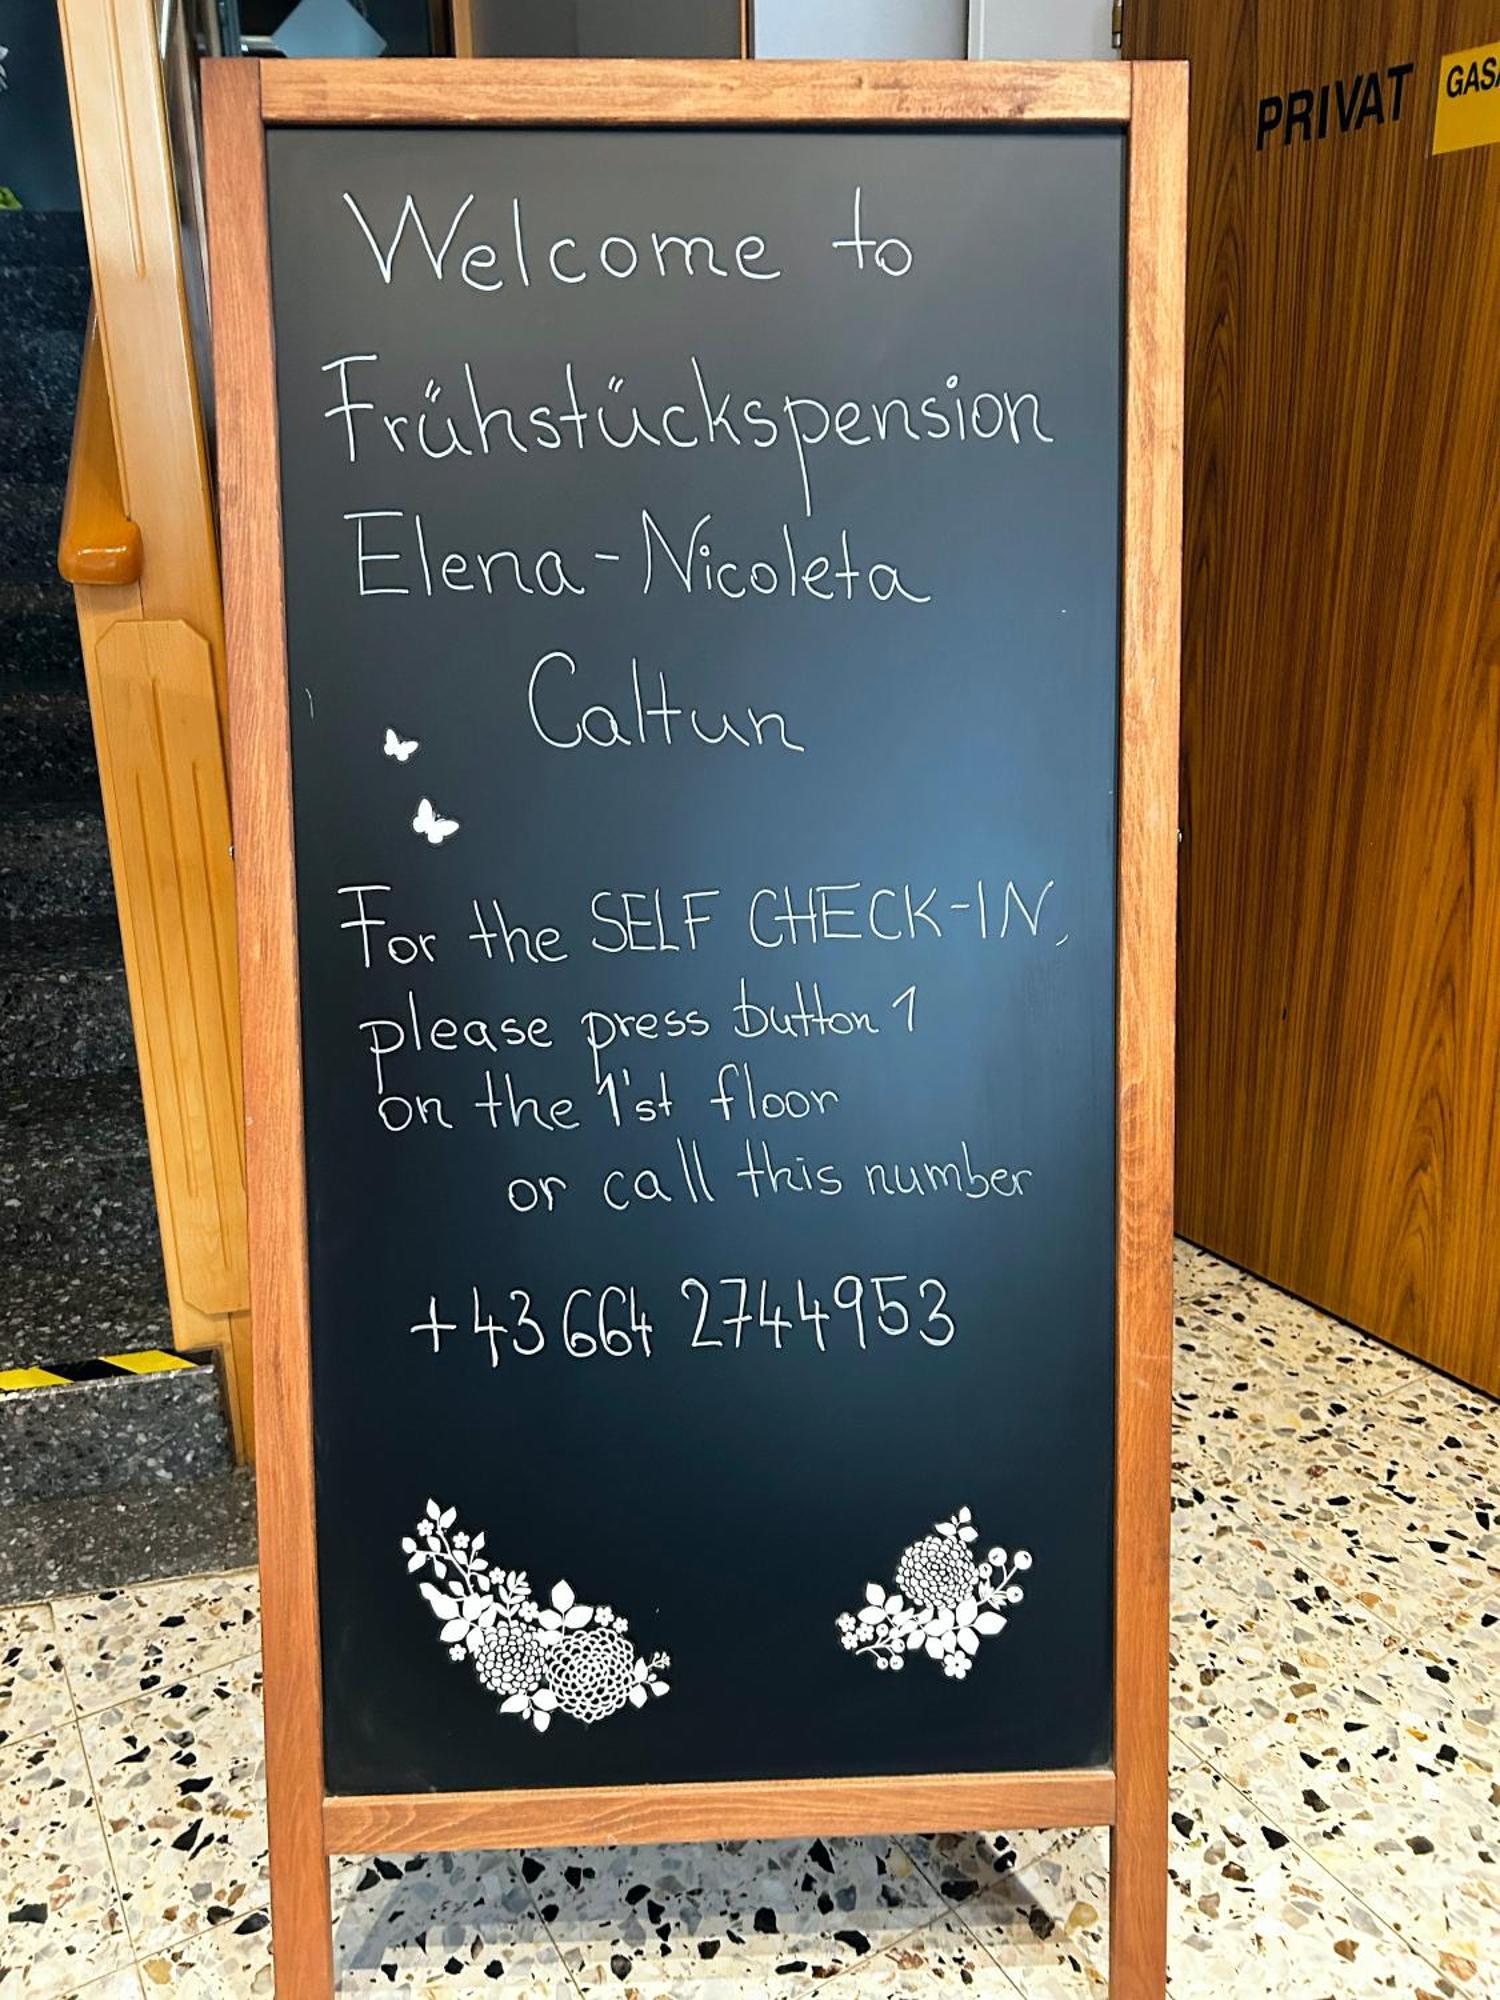 Welcome to
Frühstückspension
Elena-Nicoleta
Caltun
For the SELF CHECK-IN,
please press button 1
on the 1'st floor
or call this number
+43 664 2744953
PRIVAT